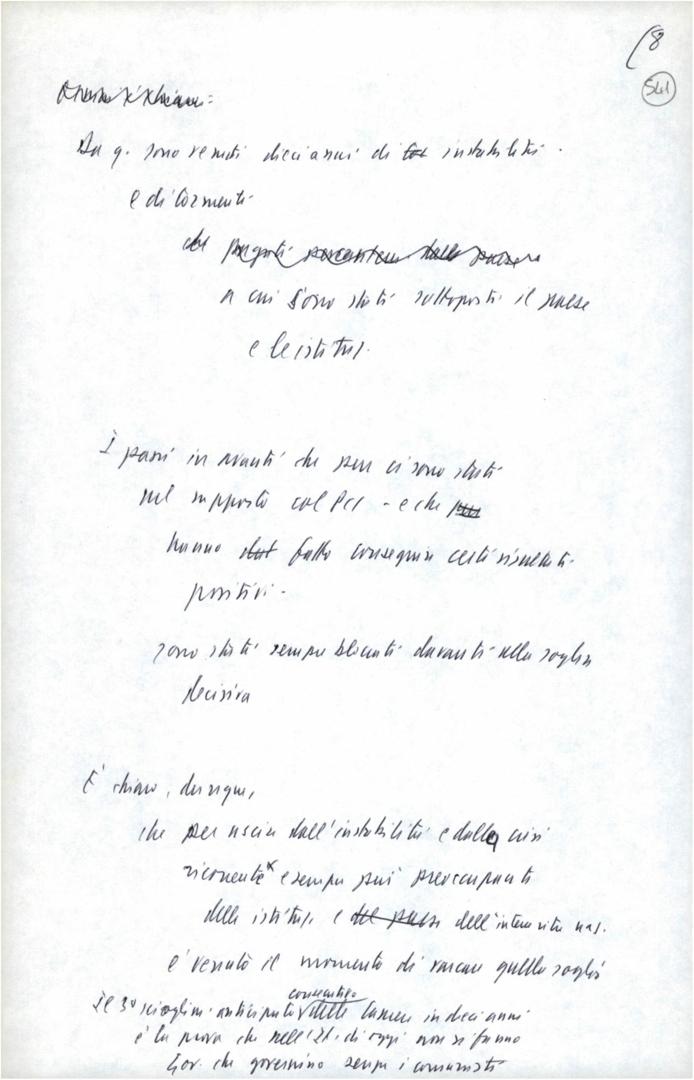 (8
541
Da q. sono venuti dieci anni di instabilità
e di tormenti
a cui sono stati sottoposti il paese
e le istituz.
I passi in avanti che pur ci sono stati
nel rapporto col PCI - e che
hanno fatto conseguire certi risultati
positivi -
sono stati sempre bloccati davanti alla soglia
decisiva
È chiaro, dunque,
che per uscire dall'instabilità e dalla crisi
ricorrente e sempre più preoccupante
delle istituz. e del paese dell'intera vita naz.
è venuto il momento di varcare quella soglia
Il 3° scioglim. anticipato consecutivo delle Camere in dieci anni
è la prova che nell'It. di oggi non si fanno
Gov. che governino senza i comunisti